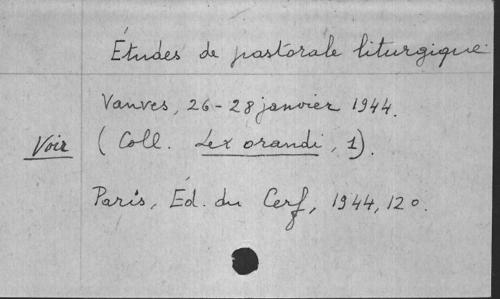 Études de pastorale liturgique
Vanves, 26-28 janvier 1944.
Voir (Coll. Lex orandi, 1).
Paris, Éd. du Cerf, 1944, 120.